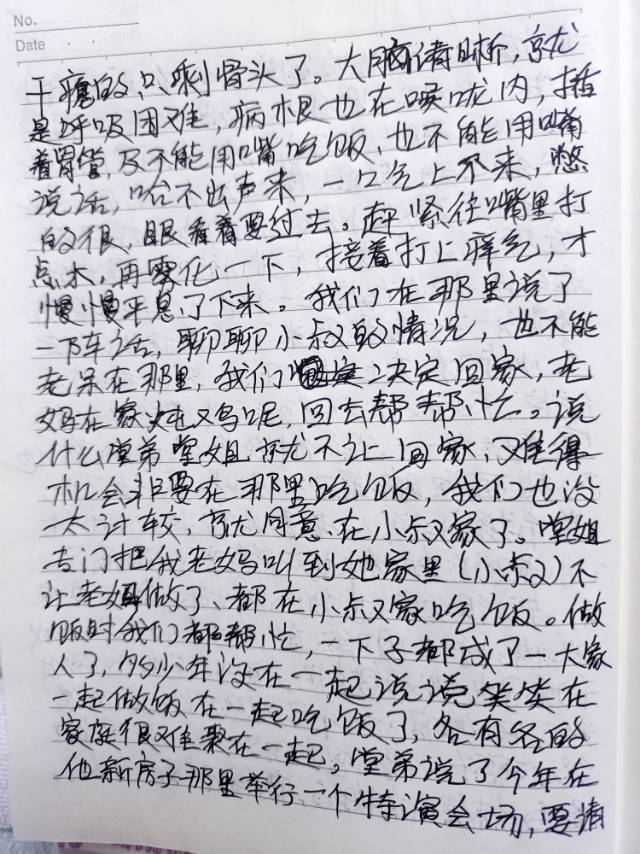 No.
Date
干瘪的只剩骨头了。大脑清晰，就
是呼吸困难，病根也在喉咙内，插
着胃管，及不能用嘴吃饭，也不能用嘴
说话，哈不出声来，一口气上不来，憋
的很，眼看着要过去。赶紧往嘴里打
点水，再雾化一下，接着打上痒气，才
慢慢平息了下来。我们在那里说了
一下车话，聊聊小叔的情况，也不能
老呆在那里，我们决定回家，老
妈在家炖鸡呢，回去帮帮忙。说
什么堂弟堂姐就不让回家，难得
机会非要在那里吃饭，我们也没
太计较，就同意在小叔家了。堂姐
专门把我老妈叫到她家里（小叔）不
让老妈做了、都在小叔家吃饭。做
饭时我们都帮忙，一下子都成了一大家
人了，多少年没在一起说说笑笑在
一起做饭在一起吃饭了，各有各的
家庭很难聚在一起。堂弟说了今年在
他新房子那里举行一个特演会场，要请